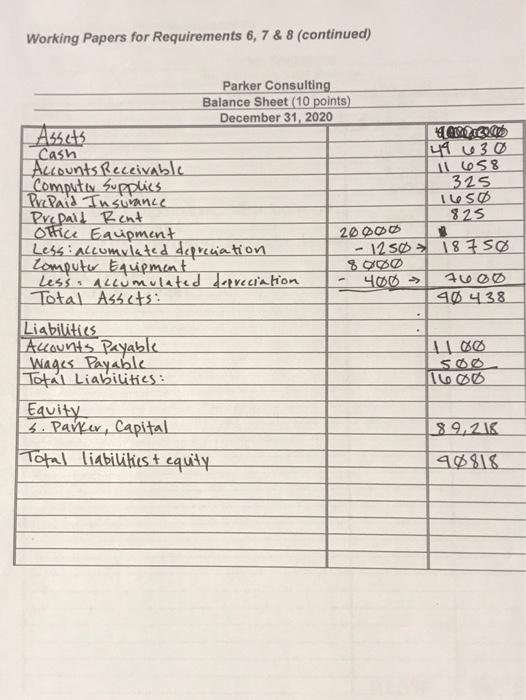 Working Papers for Requirements 6, 7 & 8 (continued)
Parker Consulting
Balance Sheet (10 points)
December 31, 2020
Assets
Cash 49 630
Accounts Receivable 11 658
Computer Supplies 325
PrePaid Insurance 1650
Prepaid Rent 825
Office Equipment 20000
Less: accumulated depreciation - 1250 → 18750
Computer Equipment 8000
Less: accumulated depreciation - 400 → 7600
Total Assets: 90 438
Liabilities
Accounts Payable 1100
Wages Payable 500
Total Liabilities: 1600
Equity
S. Parker, Capital 89,218
Total liabilities + equity 90818